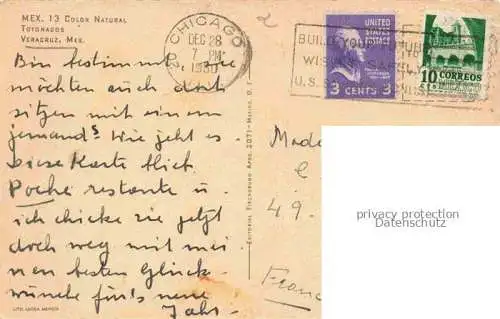 MEX. 13 COLOR NATURAL
TOTONACOS
VERACRUZ, MEX.
Bin bestimmt Sie
möchten auch dort
sitzen mit einem
jemand? Wie geht es.
Diese Karte blieb
Poche restante u.
ich chicke sie jetzt
doch weg mit mei
nen besten Glück-
wünsche für's neue
Jahr.
LITO. LEOSA MEXICO
EDITORIAL FISCHGRUND APDO. 2071-MEXICO, D. F.
CHICAGO
DEC 28
7 PM
BUILD YOUR
WISE
U.S.
UNITED
STATES
POSTAGE
3 CENTS 3
10
CORREOS
Made
49.
Franc
privacy protection
Datenschutz